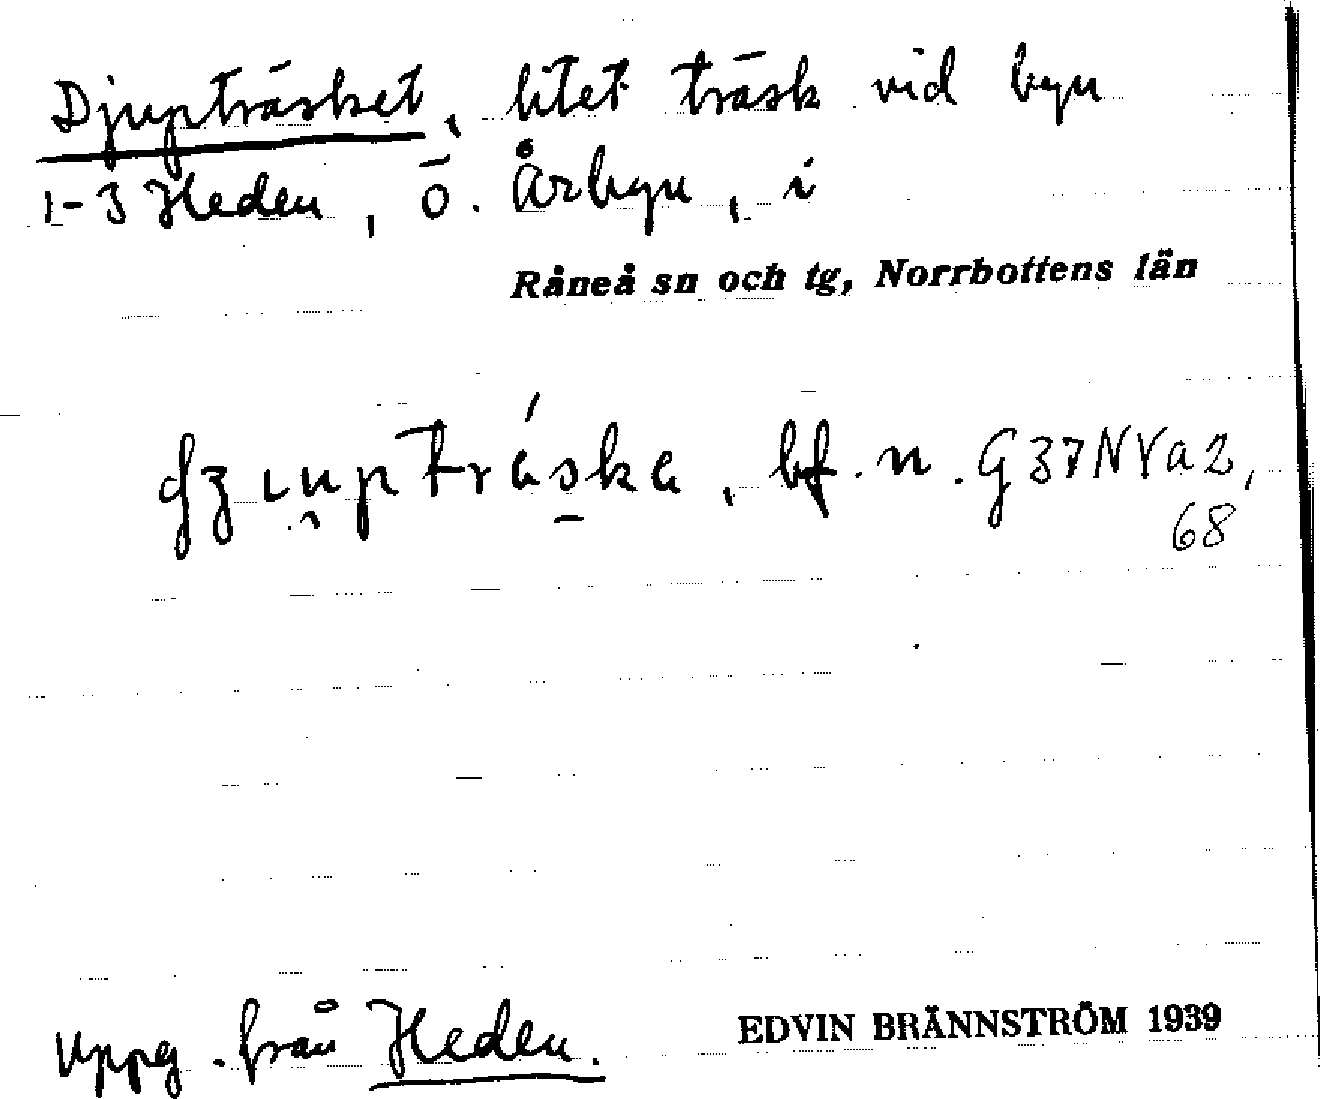 Djupträsket, litet träsk vid byn
1-3 Heden, ö. Årbyn, i
Råneå sn och tg, Norrbottens län
bf. n. G37NVa2,
68
Uppg. från Heden.
EDVIN BRÄNNSTRÖM 1939